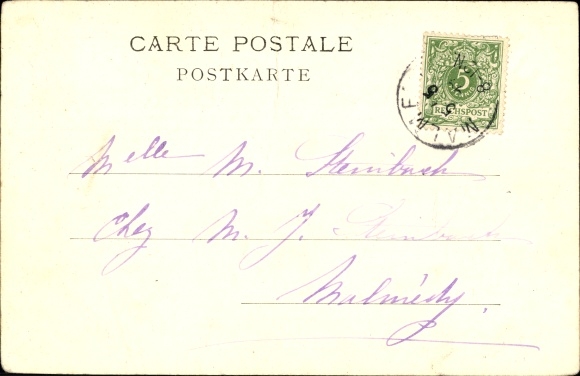 CARTE POSTALE
POSTKARTE
5
PFENNIG
REICHSPOST
Melle M. Steinbach
chez M. J. Steinbach
Malmédy.